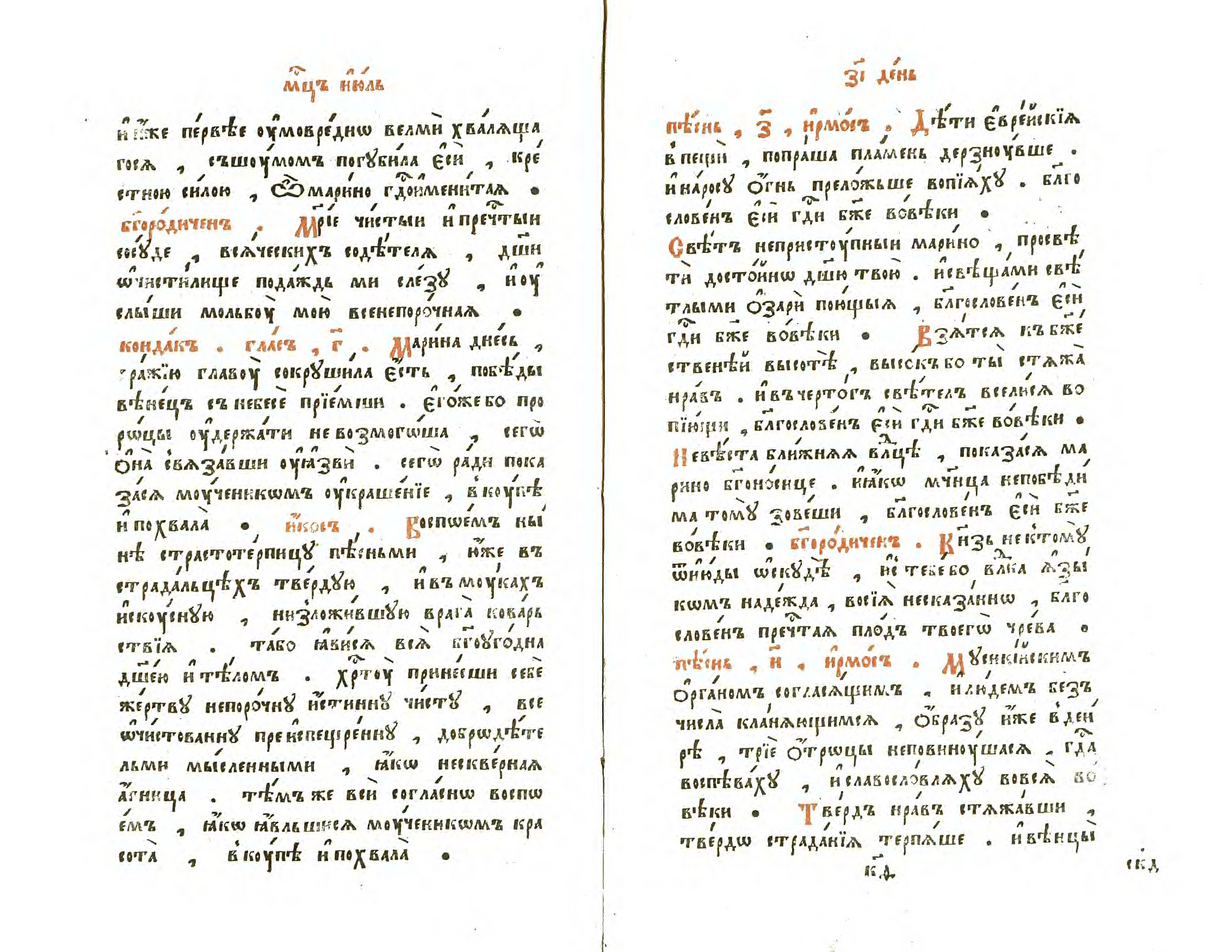 мⷭ҇цъ і҆ю́ль
и҆ и҆́же пе́рвѣе ᲂу҆мовре́днѡ велмѝ хвалѧ́ща
госѧ , съшᲂу́момъ погꙋби́ла є҆сѝ , кре́
стною си́лою , ѽ мари́но гдⷭ҇ои҆мени́таѧ .
бг҃оро́диченъ . Мр҃і́е чи́стыи и҆ пречⷭ҇тыи
сосꙋ́де , всѧ́ческихъ содѣ́телѧ , дш҃и
ѡ҆чисти́лище пода́ждь ми сле́зꙋ , и҆ ᲂу҆
слы́ши мольбᲂу̀ мою̀ всенепоро́чнаѧ .
конда́къ . гла́съ , г҃ . Мари́на дне́сь ,
вра́жїю главᲂу̀ сокрꙋши́ла є҆́сть , побѣ́ды
вѣне́цъ съ небесѐ прїе́мши . є҆го́же бо про
рѡ́цы ᲂу҆держа́ти не возмого́ша , сего̀
ѻ҆на̀ свѧза́вши ᲂу҆ꙗ҆звѝ . сегѡ̀ ра́ди пока
за́сѧ мᲂу́ченикѡмъ ᲂу҆краше́нїе , вкᲂу́пѣ
и҆ похвала̀ . и҆́косъ . Воспѡе́мъ ны́
нѣ страстоте́рпицꙋ пѣ́сньми , ю҆́же въ
страда́льцѣхъ тве́рдꙋю , и҆ въ мᲂу́кахъ
и҆скᲂу́снꙋю , низложи́вшꙋю врага̀ кова́рь
ствїѧ . та́бо ꙗ҆ви́сѧ всѧ̀ бг҃оᲂуго́дна
дш҃е́ю и҆ тѣ́ломъ . хрⷭ҇тᲂу̀ прине́сши себѐ
же́ртвꙋ непоро́чнꙋ и҆́стиннꙋ чи́стꙋ , все
ѡ҆чи́стованнꙋ преи҆спещре́ннꙋ , добрѡдѣ́те
льми мы́сленными , ꙗ҆́кѡ нескве́рнаѧ
а҆́гница . тѣ́мъ же всѝ согла́снѡ воспѡ
е́мъ , ꙗ҆́кѡ ꙗ҆́вльшисѧ мᲂу́ченикѡмъ кра
сота̀ , вкᲂу́пѣ и҆ похвала̀ .
з҃і де́нь
пѣ́снь , з҃ , і҆рмо́съ . Дѣ́ти є҆вре́йскїѧ
в пещѝ , попра́ша пла́мень дерзнᲂу́вше .
и҆ на́росꙋ ѻ҆́гнь прело́жьше вопїѧ́хꙋ . блⷢ҇о
слове́нъ є҆сѝ гдⷭ҇и бж҃е во́вѣки .
Свѣ́тъ непристᲂу́пныи мари́но , просвѣ
тѝ досто́йнѡ дш҃ю твою̀ . и҆ свѣща́ми свѣ́
тлыми ѻ҆зарѝ пою́щыѧ , блⷢ҇ослове́нъ є҆сѝ
гдⷭ҇и бж҃е во́вѣки . Взѧ́тсѧ къ бж҃е́
ственѣй высотѣ̀ , высо́къ бо ты̀ стѧжа̀
нра́въ . и҆ въ черто́гъ свѣ́телъ всели́сѧ во
пїю́щи , блⷢ҇ослове́нъ є҆сѝ гдⷭ҇и бж҃е во́вѣки .
Невѣ́ста бли́жнѧѧ влⷣцѣ , показа́сѧ ма
ри́но бг҃оно́снице . и҆ ꙗ҆́кѡ мч҃ница непобѣди́
ма томꙋ̀ зове́ши , блⷢ҇ослове́нъ є҆сѝ бж҃е
во́вѣки . бг҃оро́диченъ . Кнѧ́зь не ктомꙋ̀
ѿ и҆ю́ды ѡ҆скꙋдѣ̀ , и҆с тебе́ бо влⷣка ꙗ҆зы́
кѡмъ наде́жда , восїѧ̀ несказа́ннѡ , блⷢ҇о
слове́нъ пречⷭ҇таѧ пло́дъ твоегѡ̀ чре́ва .
пѣ́снь , и҃ , і҆рмо́съ . Мꙋсикі́йскимъ
ѻ҆рга́номъ соглаша́ющимъ , и҆ лю́демъ безъ
числа̀ кла́нѧющимсѧ , ѻ҆́бразꙋ и҆́же в деи́
рѣ , трїѐ ѻ҆́трѡцы неповинᲂу́шасѧ , гдⷭ҇а
воспѣва́хꙋ , и҆ славосло́влѧхꙋ вовсѧ̀ во
вѣки . Тве́рдъ нра́въ стѧжа́вши ,
тве́рдѡ страда́нїѧ терпѧ́ше . и҆ вѣнцы̀
к҃д
ск҃д